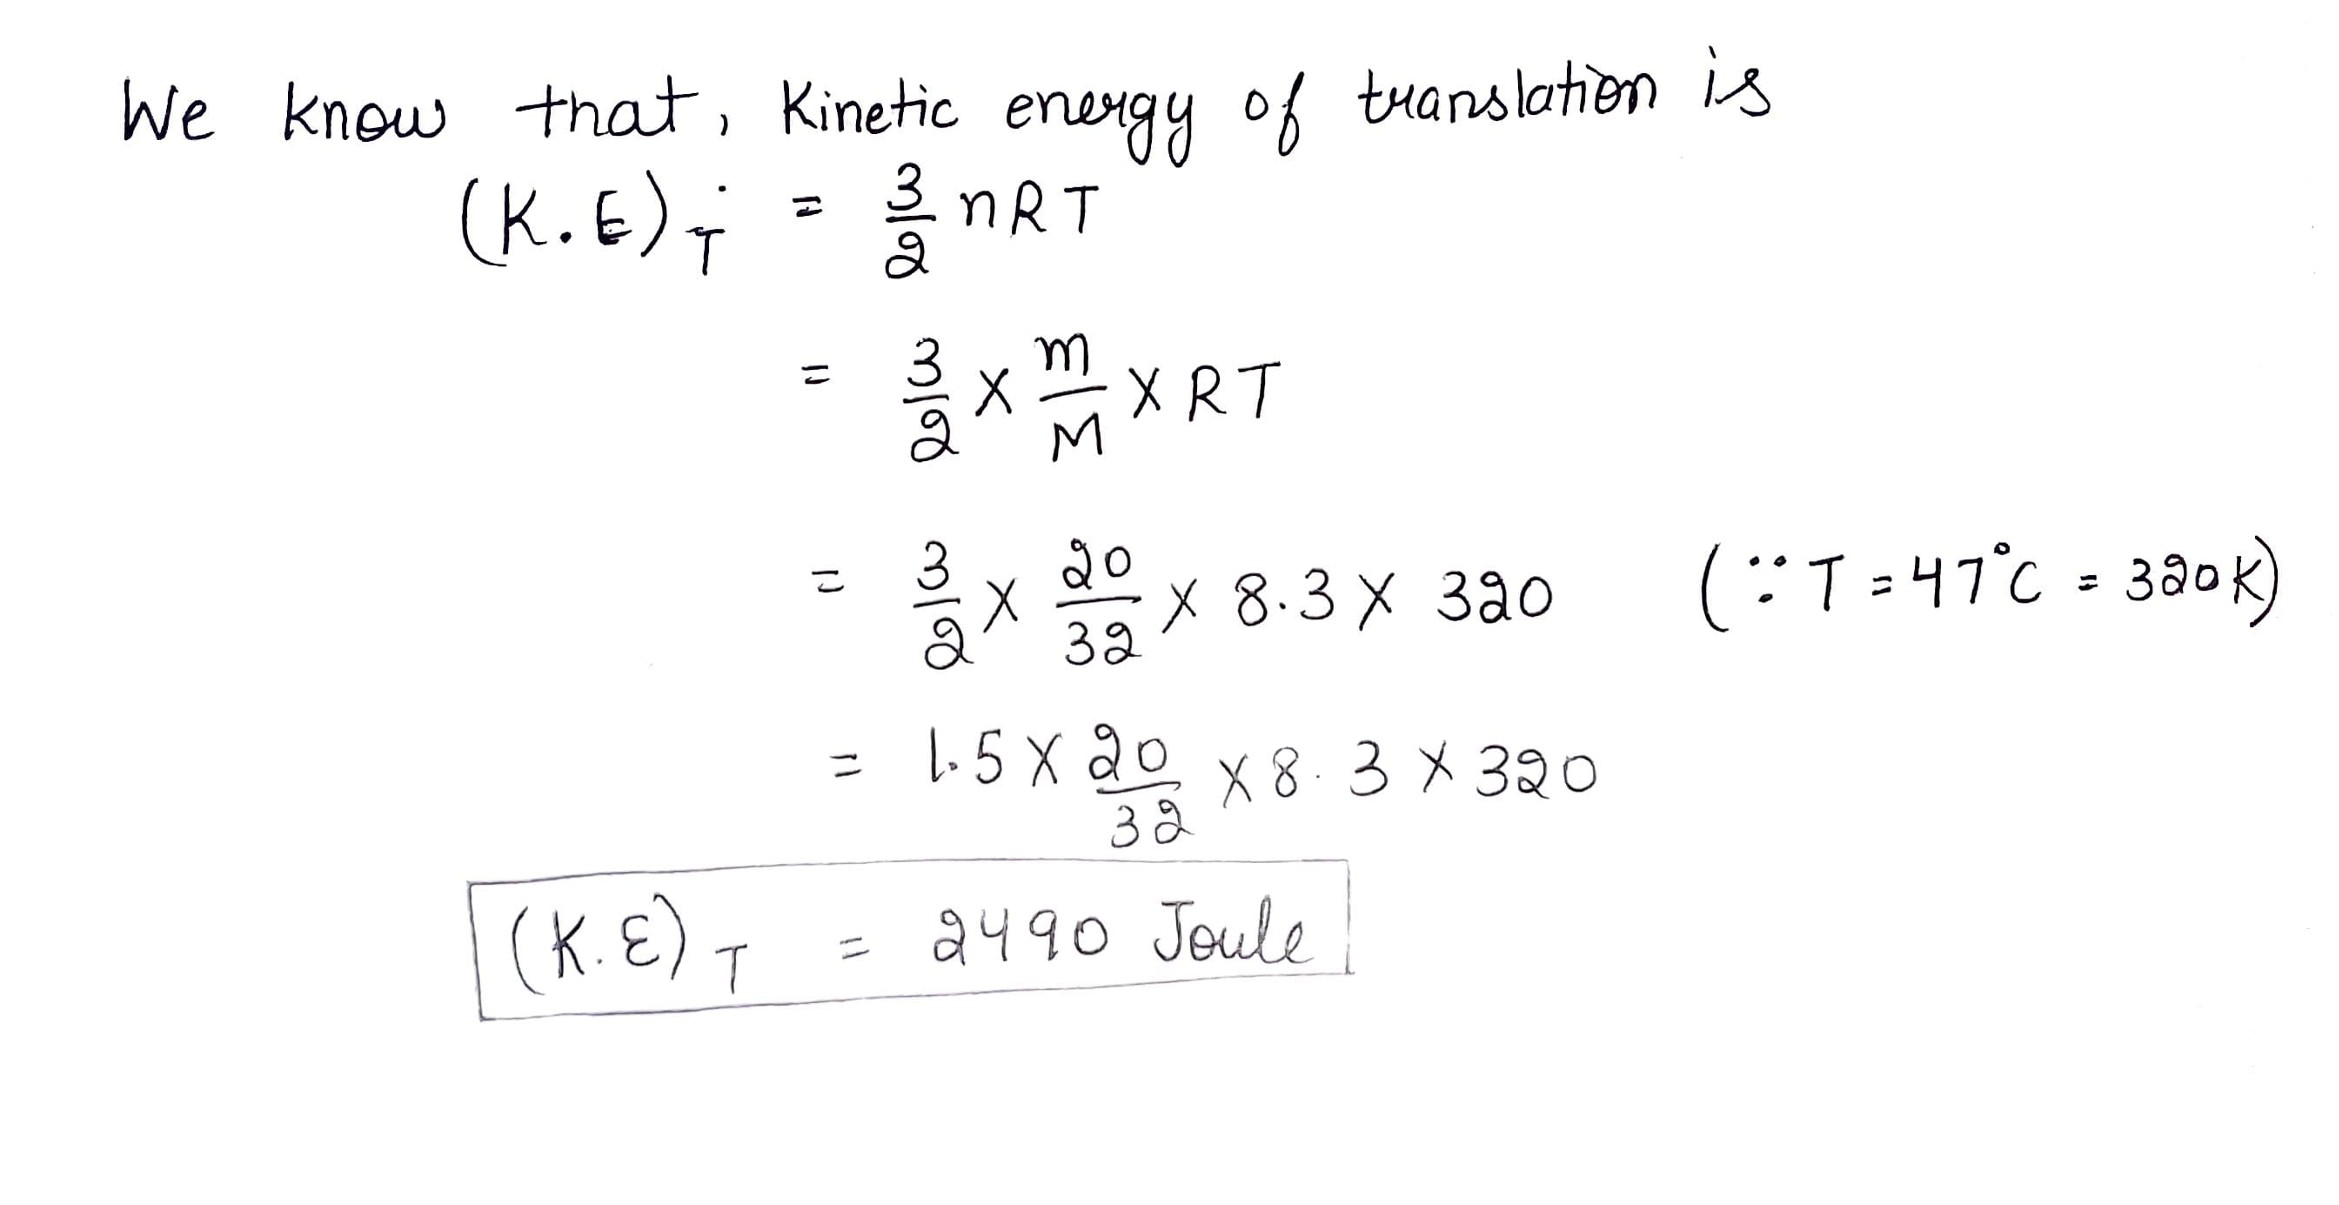 We know that, Kinetic energy of translation is
(K.E)T = 3/2 nRT
= 3/2 × m/M × RT
= 3/2 × 20/32 × 8.3 × 320 (∵ T = 47°C = 320K)
= 1.5 × 20/32 × 8.3 × 320
(K.E)T = 2490 Joule